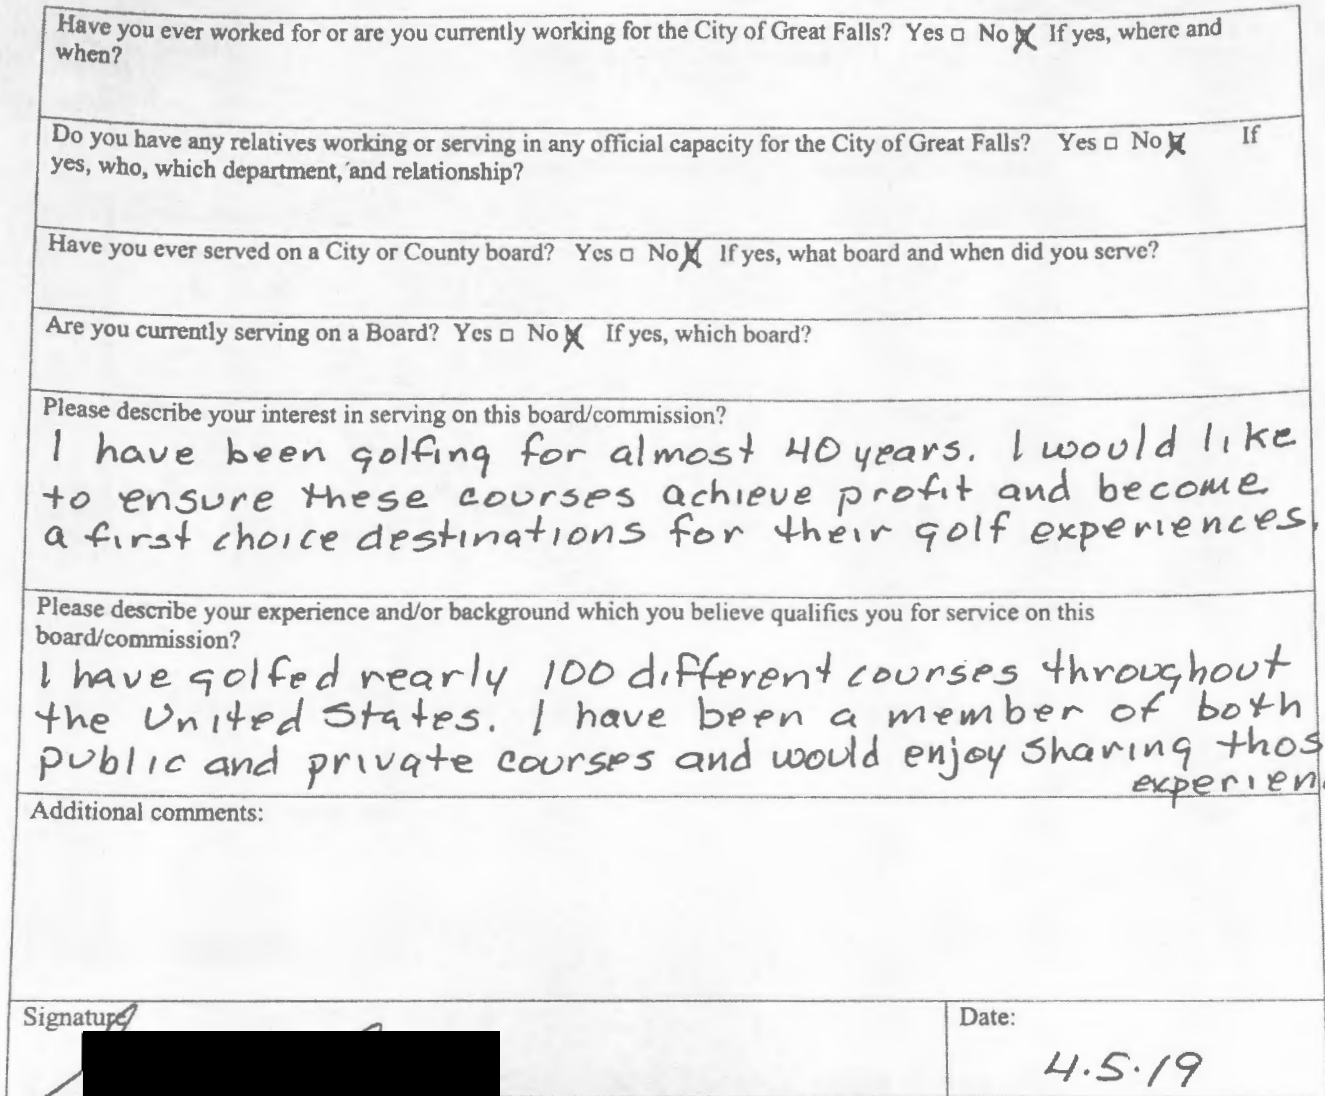 Have you ever worked for or are you currently working for the City of Great Falls? Yes □ No ☒ If yes, where and
when?
Do you have any relatives working or serving in any official capacity for the City of Great Falls? Yes □ No ☒ If
yes, who, which department, and relationship?
Have you ever served on a City or County board? Yes □ No ☒ If yes, what board and when did you serve?
Are you currently serving on a Board? Yes □ No ☒ If yes, which board?
Please describe your interest in serving on this board/commission?
I have been golfing for almost 40 years. I would like
to ensure these courses achieve profit and become
a first choice destinations for their golf experiences.
Please describe your experience and/or background which you believe qualifies you for service on this
board/commission?
I have golfed nearly 100 different courses throughout
the United States. I have been a member of both
public and private courses and would enjoy sharing thos
experien
Additional comments:
Signature
Date:
4.5.19